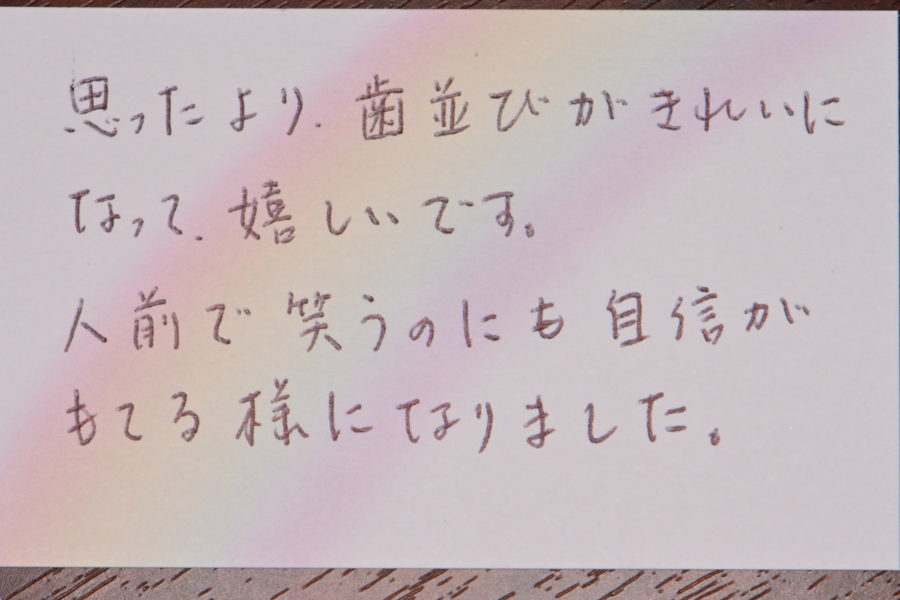 思ったより、歯並びがきれいに
なって、嬉しいです。
人前で笑うのにも自信が
もてる様になりました。